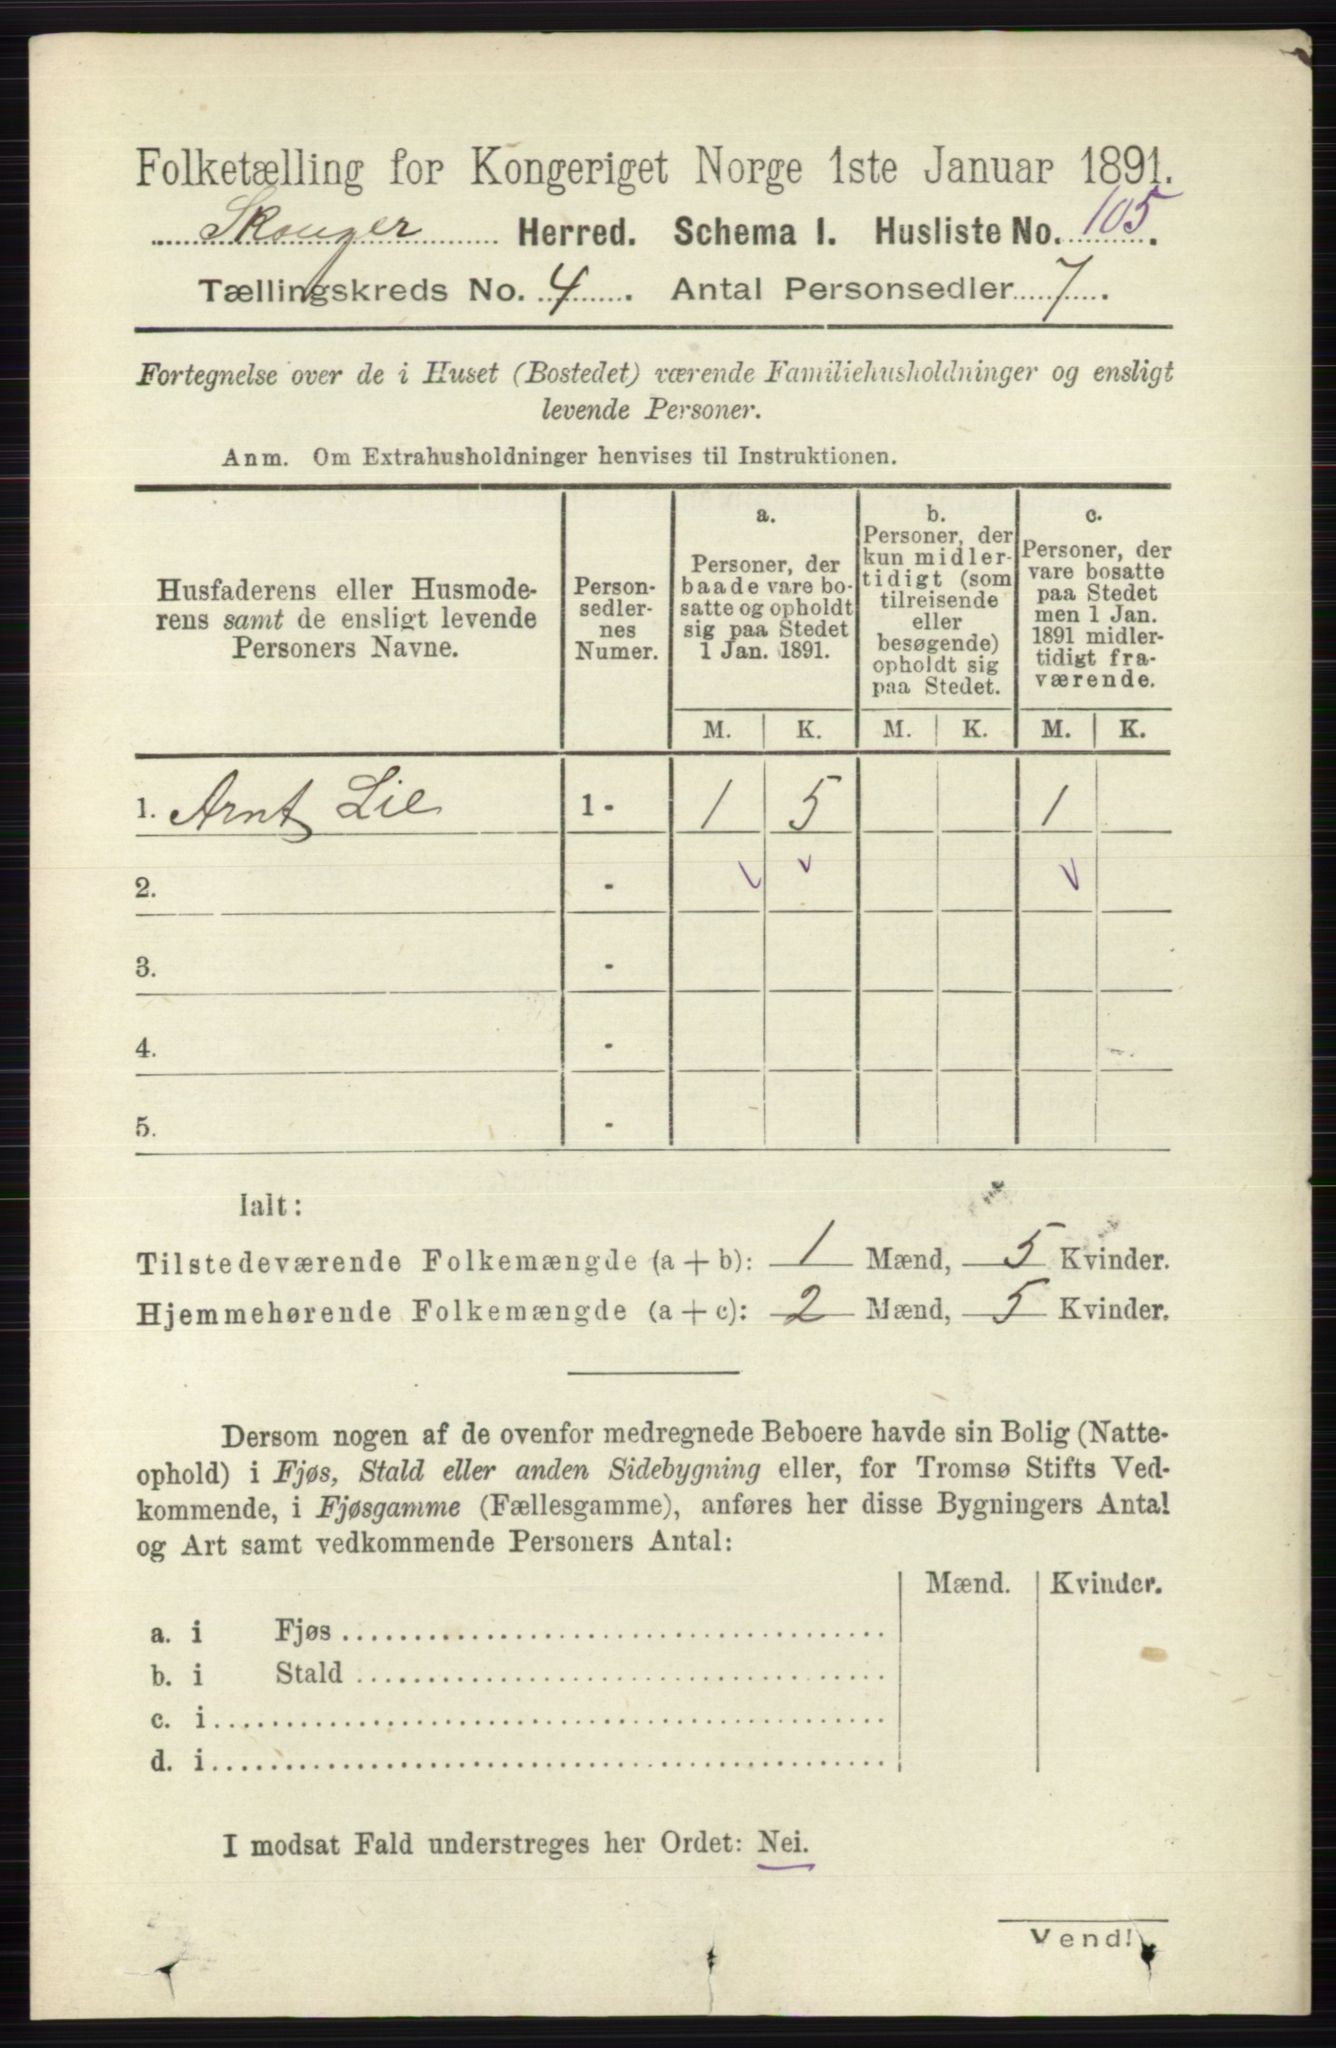 Folketælling for Kongeriget Norge 1ste Januar 1891.
Skouger Herred. Schema I. Husliste No. 105.
Tællingskreds No. 4. Antal Personsedler 7.
Fortegnelse over de i Huset (Bostedet) værende Familiehusholdninger og ensligt
levende Personer.
Anm. Om Extrahusholdninger henvises til Instruktionen.
Husfaderens eller Husmode-
rens samt de ensligt levende
Personers Navne.
Person-
sedler-
nes
Numer.
a.
Personer, der
baade vare bo-
satte og opholdt
sig paa Stedet
1 Jan. 1891.
b.
Personer, der
kun midler-
tidigt (som
tilreisende
eller
besøgende)
opholdt sig
paa Stedet.
c.
Personer, der
vare bosatte
paa Stedet
men 1 Jan.
1891 midler-
tidigt fra-
værende.
M. K. M. K. M. K.
1. Arnt Lie 1 - 1 5 1
2. -
3. -
4. -
5. -
Ialt:
Tilstedeværende Folkemængde (a + b): 1 Mænd, 5 Kvinder.
Hjemmehørende Folkemængde (a + c): 2 Mænd, 5 Kvinder.
Dersom nogen af de ovenfor medregnede Beboere havde sin Bolig (Natte-
ophold) i Fjøs, Stald eller anden Sidebygning eller, for Tromsø Stifts Ved-
kommende, i Fjøsgamme (Fællesgamme), anføres her disse Bygningers Antal
og Art samt vedkommende Personers Antal:
Mænd. Kvinder.
a. i Fjøs
b. i Stald
c. i
d. i
I modsat Fald understreges her Ordet: Nei.
Vend!